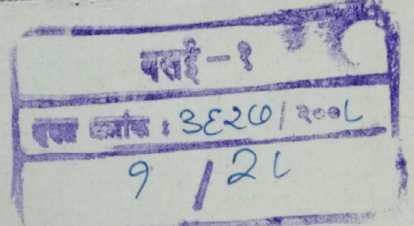 वसई - १
दस्त क्रमांक : ३६२७ / २००८
१ / २८